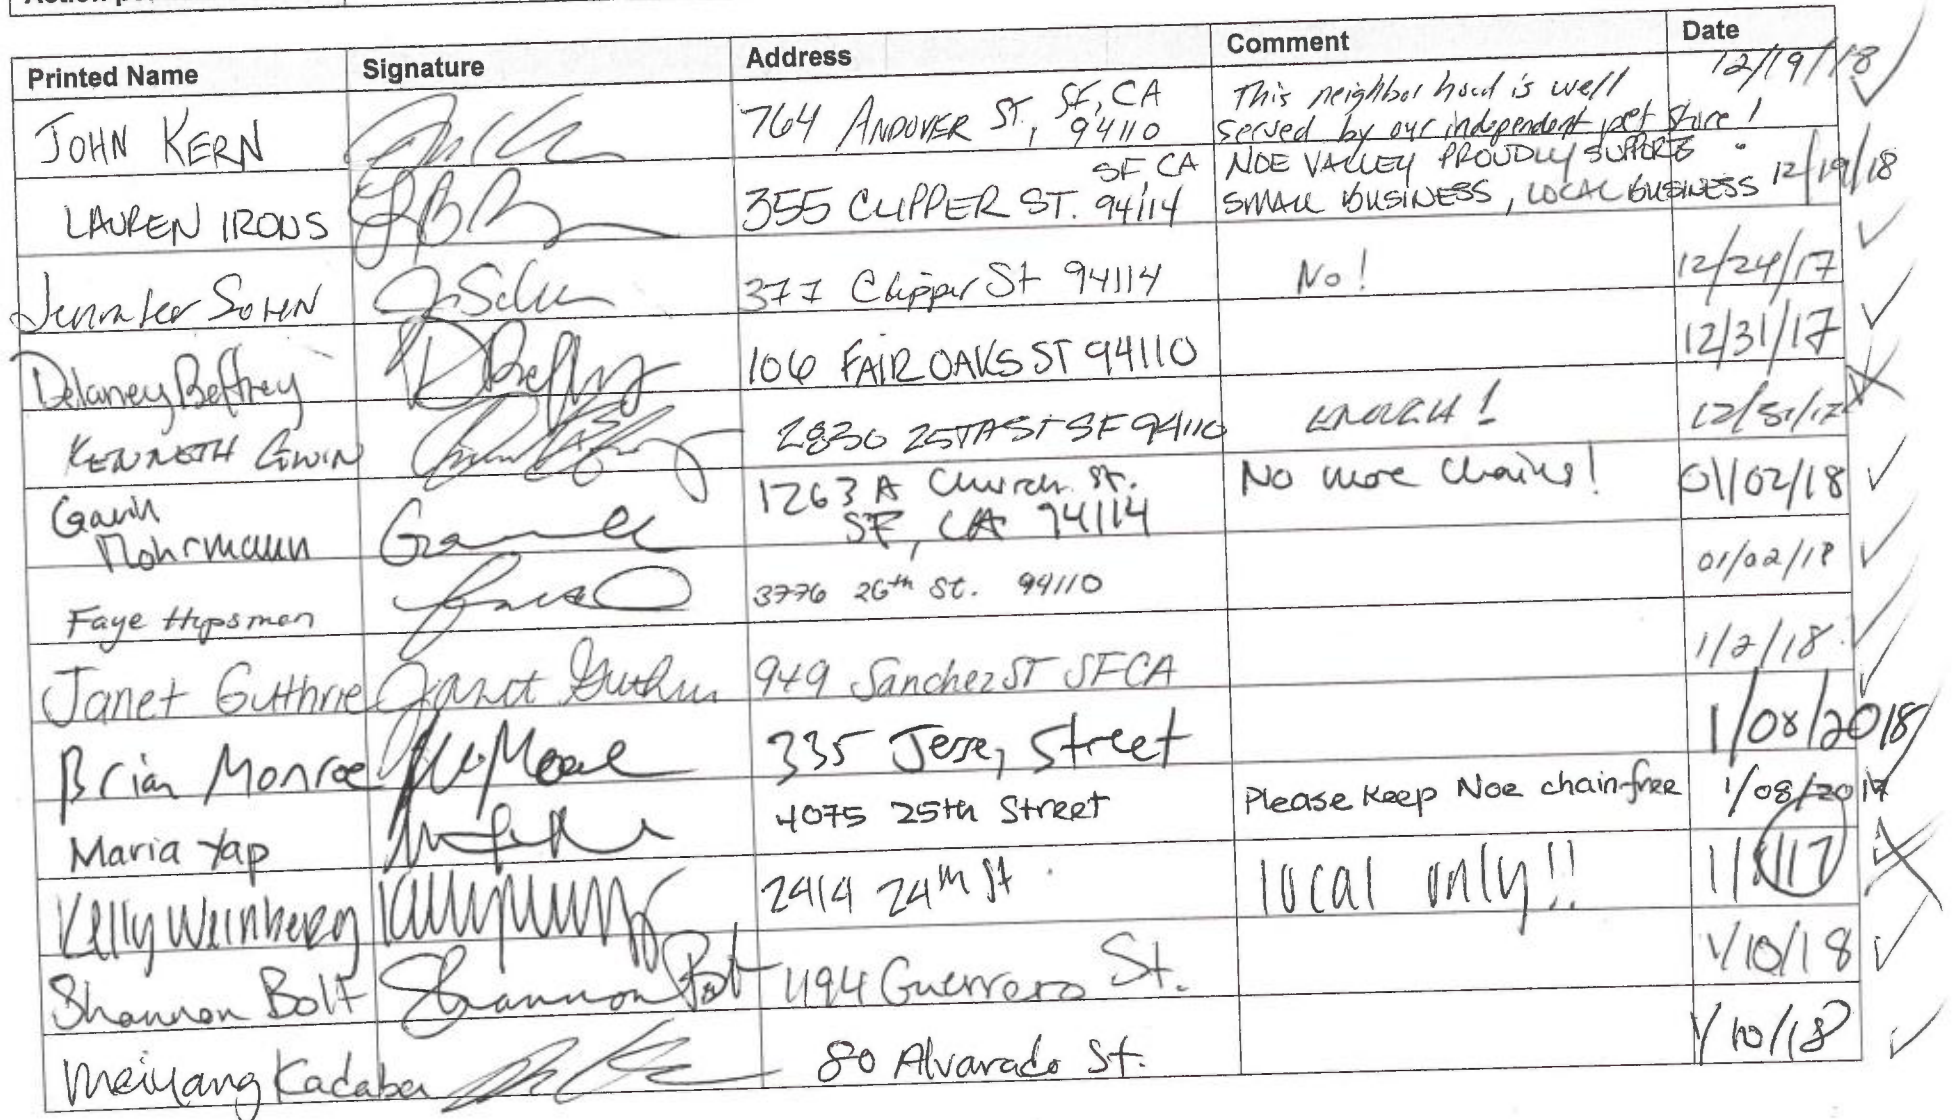 Printed Name Signature Address Comment Date
JOHN KERN 764 ANDOVER ST, SF, CA 94110 This neighborhood is well served by our independent pet store! 12/19/18
LAUREN IRONS 355 CLIPPER ST. SF CA 94114 NOE VALLEY PROUDLY SUPPORTS SMALL BUSINESS, LOCAL BUSINESS 12/19/18
Jennifer SOHN 377 Clipper St 94114 No! 12/24/17
Delaney Beffrey 106 FAIR OAKS ST 94110 12/31/17
KENNETH 2830 25TH ST SF 94110 ENOUGH! 12/31/17
Gavin Mohrmann 1263 A Church St. SF, CA 94114 No more chains! 01/02/18
Faye Hipsman 3776 26th St. 94110 01/02/18
Janet Guthrie Janet Guthrie 949 Sanchez ST SF CA 1/2/18
Brian Monroe 335 Street 1/08/2018
Maria Yap 4075 25th Street Please Keep Noe chain-free 1/08/
Kelly Weinberg 2414 24th St local only!!
Shannon Bolt Shannon Bolt 1194 Guerrero St. 1/10/18
Meiyang Kadaba 80 Alvarado St. 1/10/18